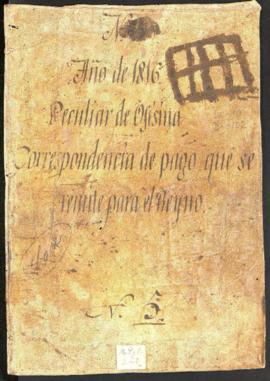 Año de 1816
Peculiar de Ofisina
Correspondencia de pago que se
remite para el Reyno.
N. 5.